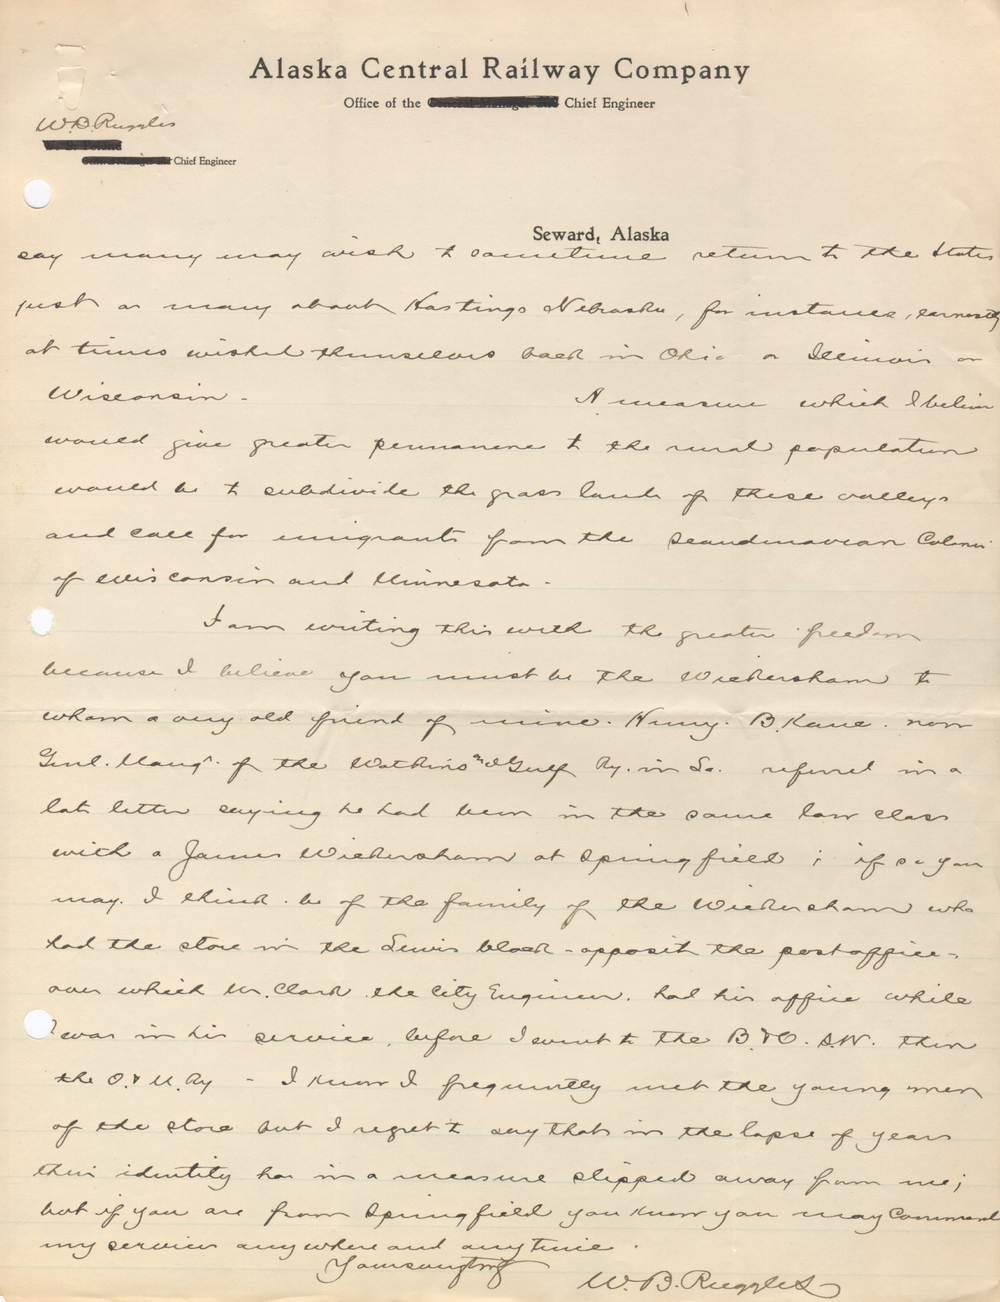 Alaska Central Railway Company
Office of the General Manager and Chief Engineer
W.B. Ruggles
Chief Engineer
Seward, Alaska
say many may wish to sometime return to the States
just as many about Hastings Nebraska, for instance, earnestly
at times wished themselves back in Ohio or Illinois or
Wisconsin - A measure which I believe
would give greater permanence to the rural population
would be to subdivide the grass lands of these valleys
and call for emigrants from the Scandinavian Colonies
of Wisconsin and Minnesota -
I am writing this with the greater freedom
because I believe you must be the Wickersham to
whom a very old friend of mine. Henry. B. Kane. now
Genl. Mangr. of the Watkins and Gulf Ry. in La. referred in a
late letter saying he had been in the same law class
with a James Wickersham at Springfield; if so you
may. I think. be of the family of the Wickersham who
had the store in the Lewis block - opposit the postoffice -
over which Mr. Clark the City Engineer. had his office while
I was in his service, before I went to the B.&O. S.W. then
the O. & M. Ry - I know I frequently met the young men
of the store but I regret to say that in the lapse of years
their identity has in a measure slipped away from me;
but if you are from Springfield you know you may Command
my services anywhere and anytime.
Yours very truly
W. B. Ruggles